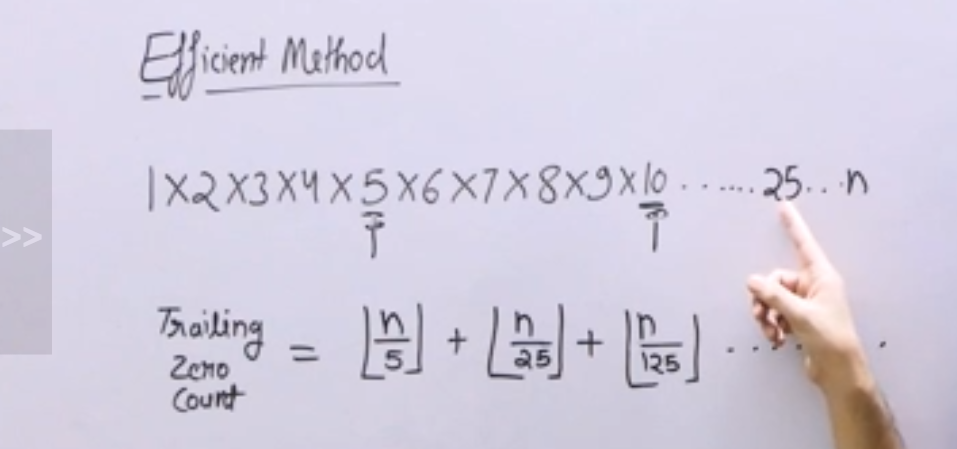 Efficient Method
1×2×3×4×5×6×7×8×9×10.......25...n
Trailing Zero Count = ⌊n/5⌋ + ⌊n/25⌋ + ⌊n/125⌋ .....
>>